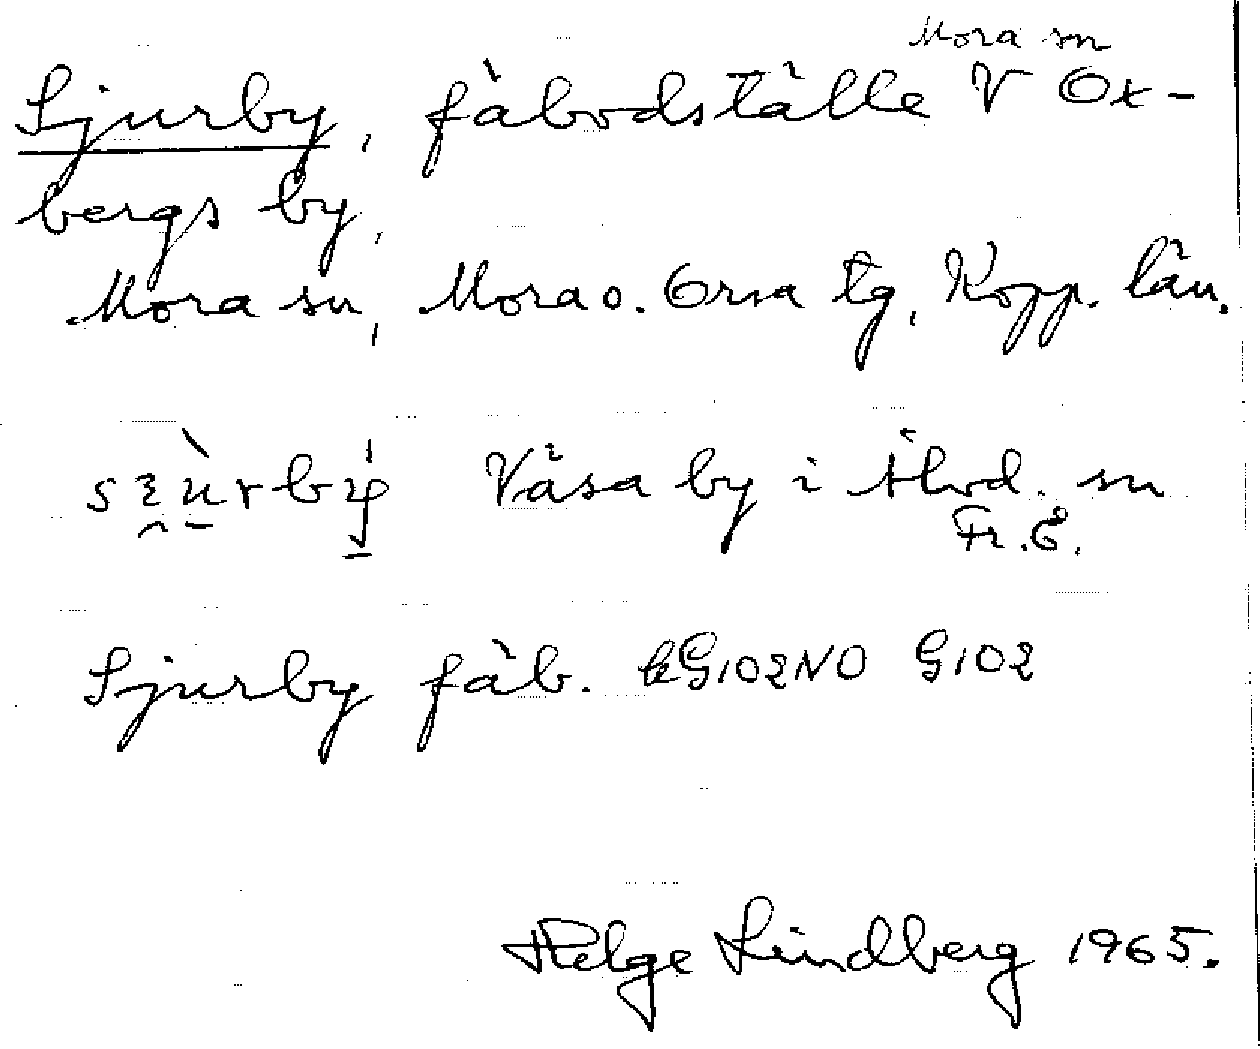 Mora sn
Sjurby, fäbodställe V Ox-
bergs by,
Mora sn, Mora o. Orsa tg, Kopp. län.
Våsa by i Älvd. sn
Fr. E.
Sjurby fäb. kG102NO G102
Helge Lindberg 1965.